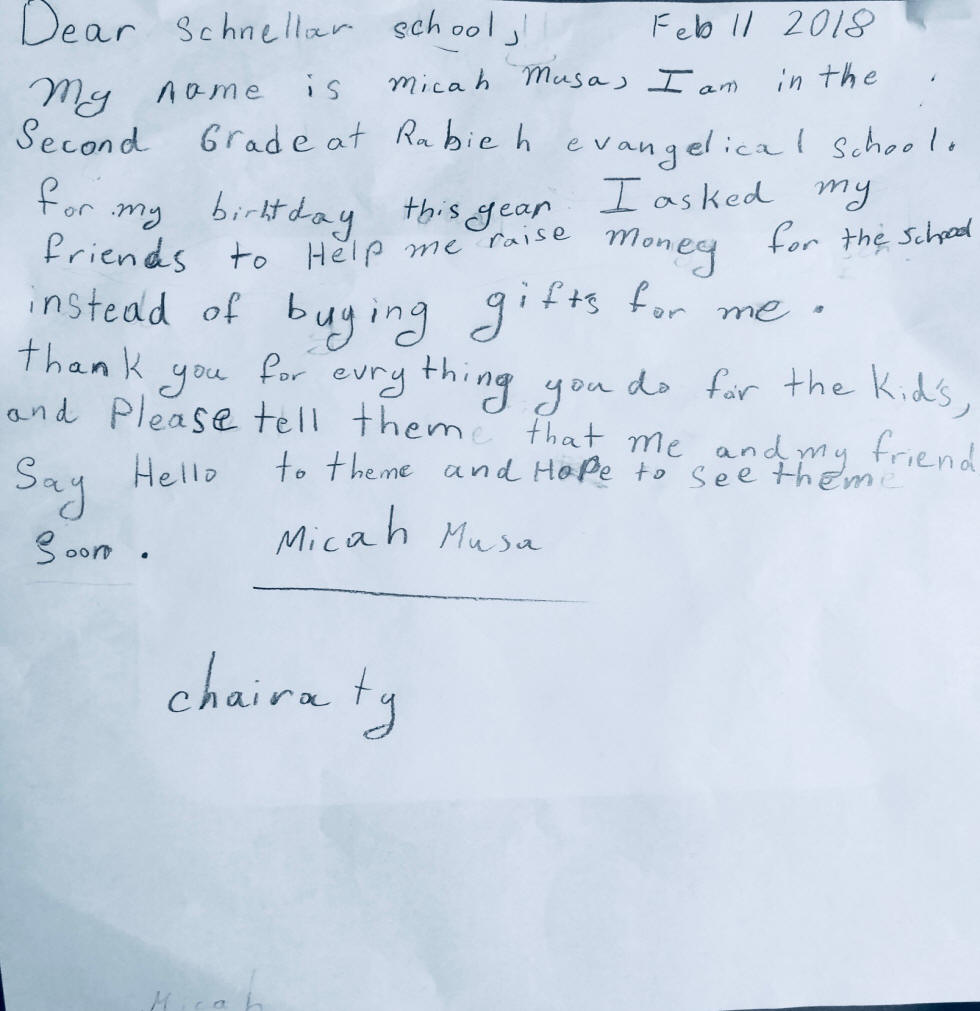 Dear Schnellar school, Feb 11 2018
My name is Micah Musa, I am in the
Second Grade at Rabieh evangelical School.
for my birhtday this year I asked my
friends to Help me raise money for the school
instead of buying gifts for me.
thank you for evry thing you do for the kid's,
and Please tell theme that me and my friend
Say Hello to theme and Hope to see theme
Soon. Micah Musa
chairaty
Micah